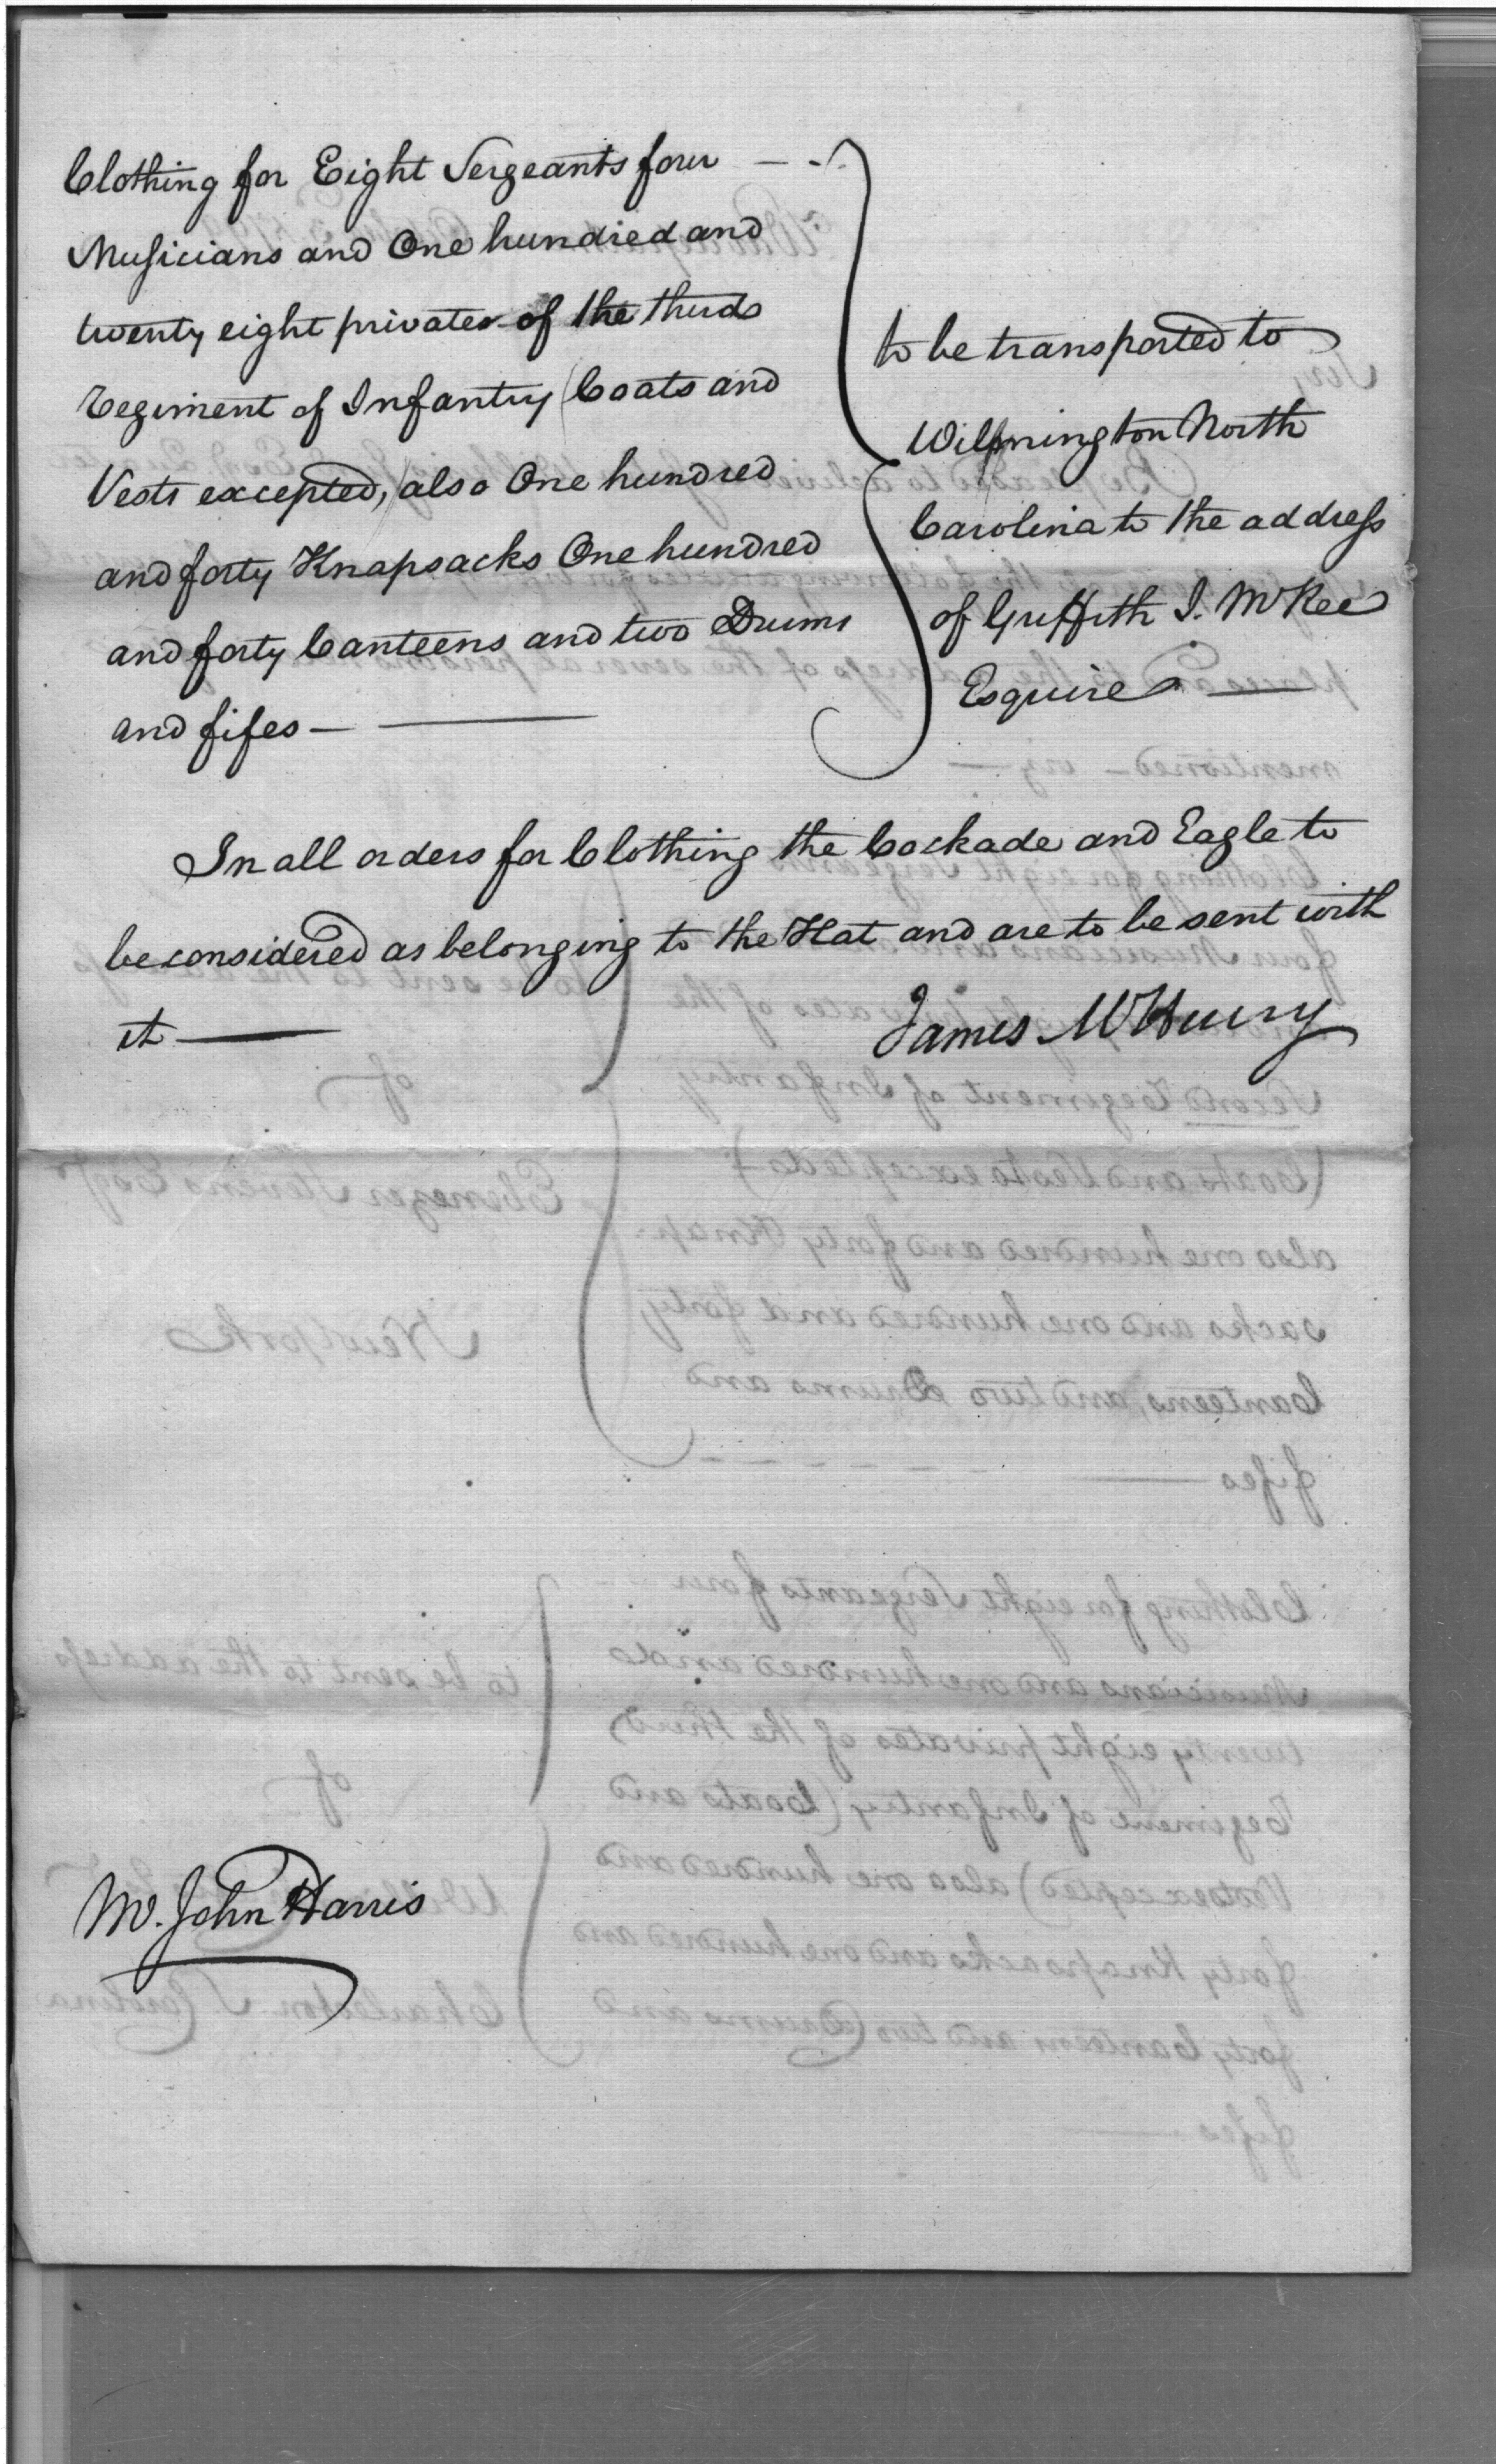 Clothing for Eight Sergeants four — -
Musicians and One hundred and
twenty eight privates of the third
regiment of Infantry (Coats and
Vests excepted,) also One hundred
and forty Knapsacks One hundred
and forty Canteens and two Drums
and fifes —
to be transported to
Wilmington North
Carolina to the address
of Griffith J. McRee
Esquire —
In all orders for Clothing the Cockade and Eagle to
be considered as belonging to the Hat and are to be sent with
it —
James McHenry
Mr. John Harris